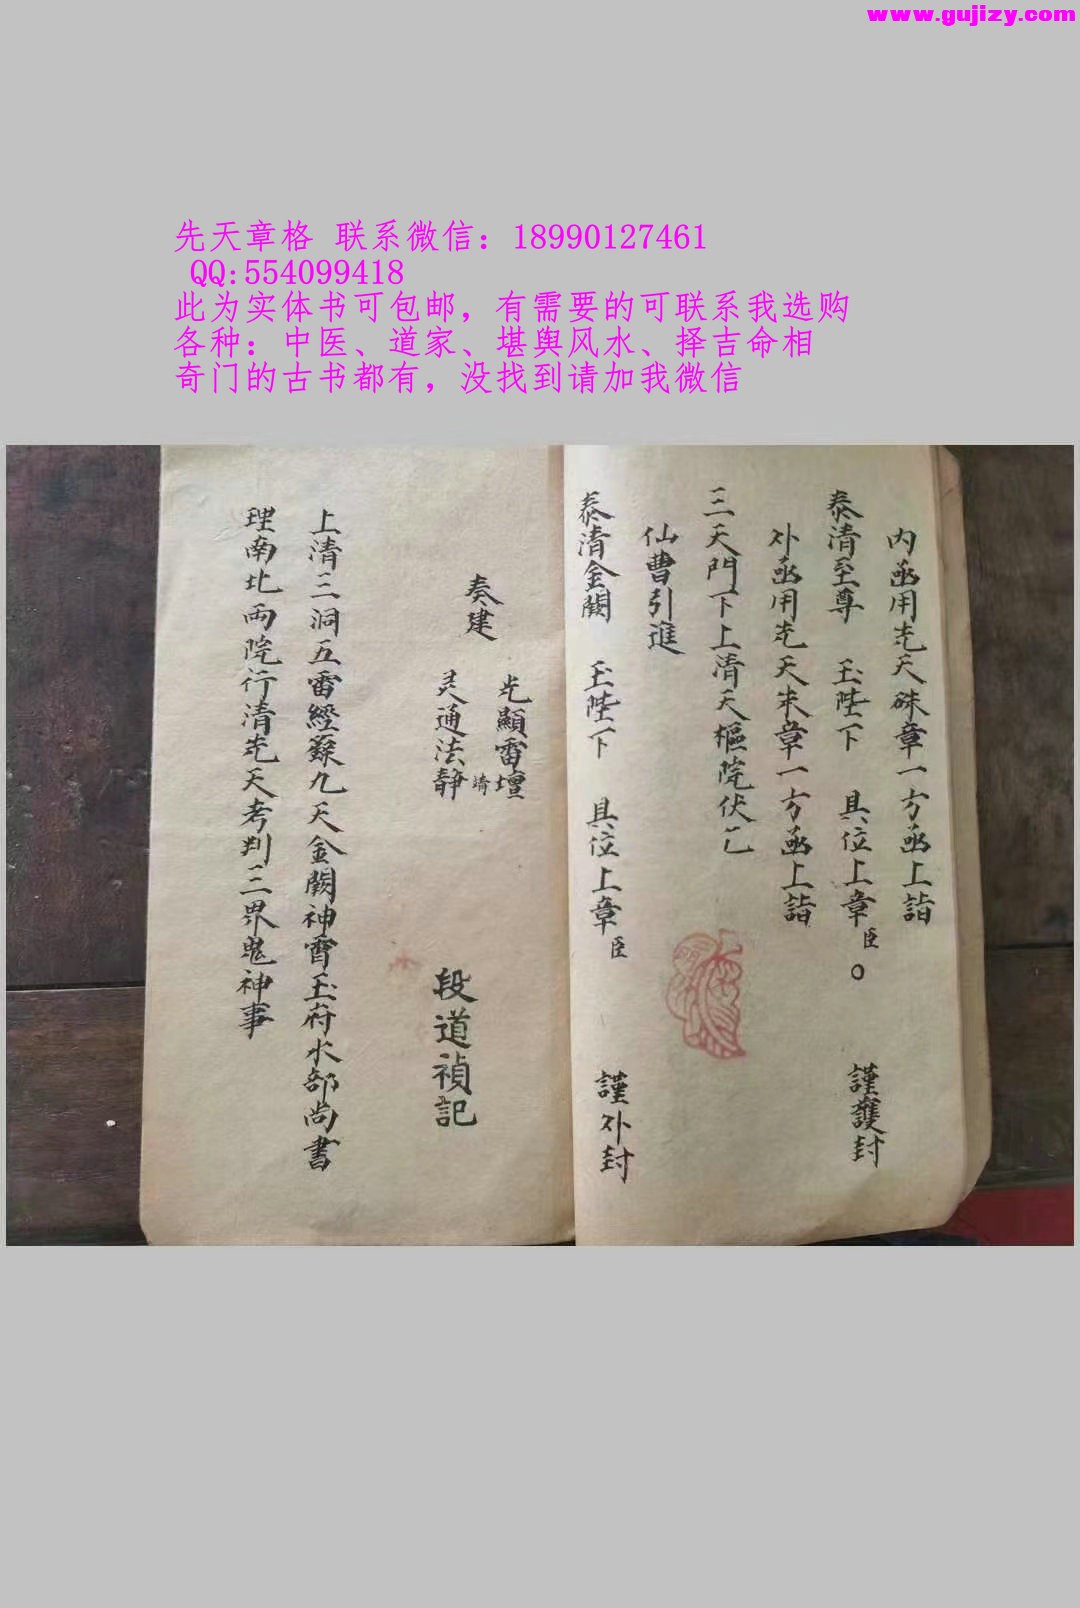 www.gujizy.com
先天章格 联系微信：18990127461
QQ:554099418
此为实体书可包邮，有需要的可联系我选购
各种：中医、道家、堪舆风水、择吉命相
奇门的古书都有，没找到请加我微信
内函用先天硃章一方函上詣
泰清至尊 玉陛下 具位上章臣○ 謹護封
外函用先天朱章一方函上詣
三天門下上清天樞院伏乞
仙曹引進
泰清金闕 玉陛下 具位上章臣 謹外封
奏建
光顯雷壇
灵通法靜 靖
段道禎記
上清三洞五雷經籙九天金闕神霄玉府水部尚書
理南北兩院行清先天考判三界鬼神事